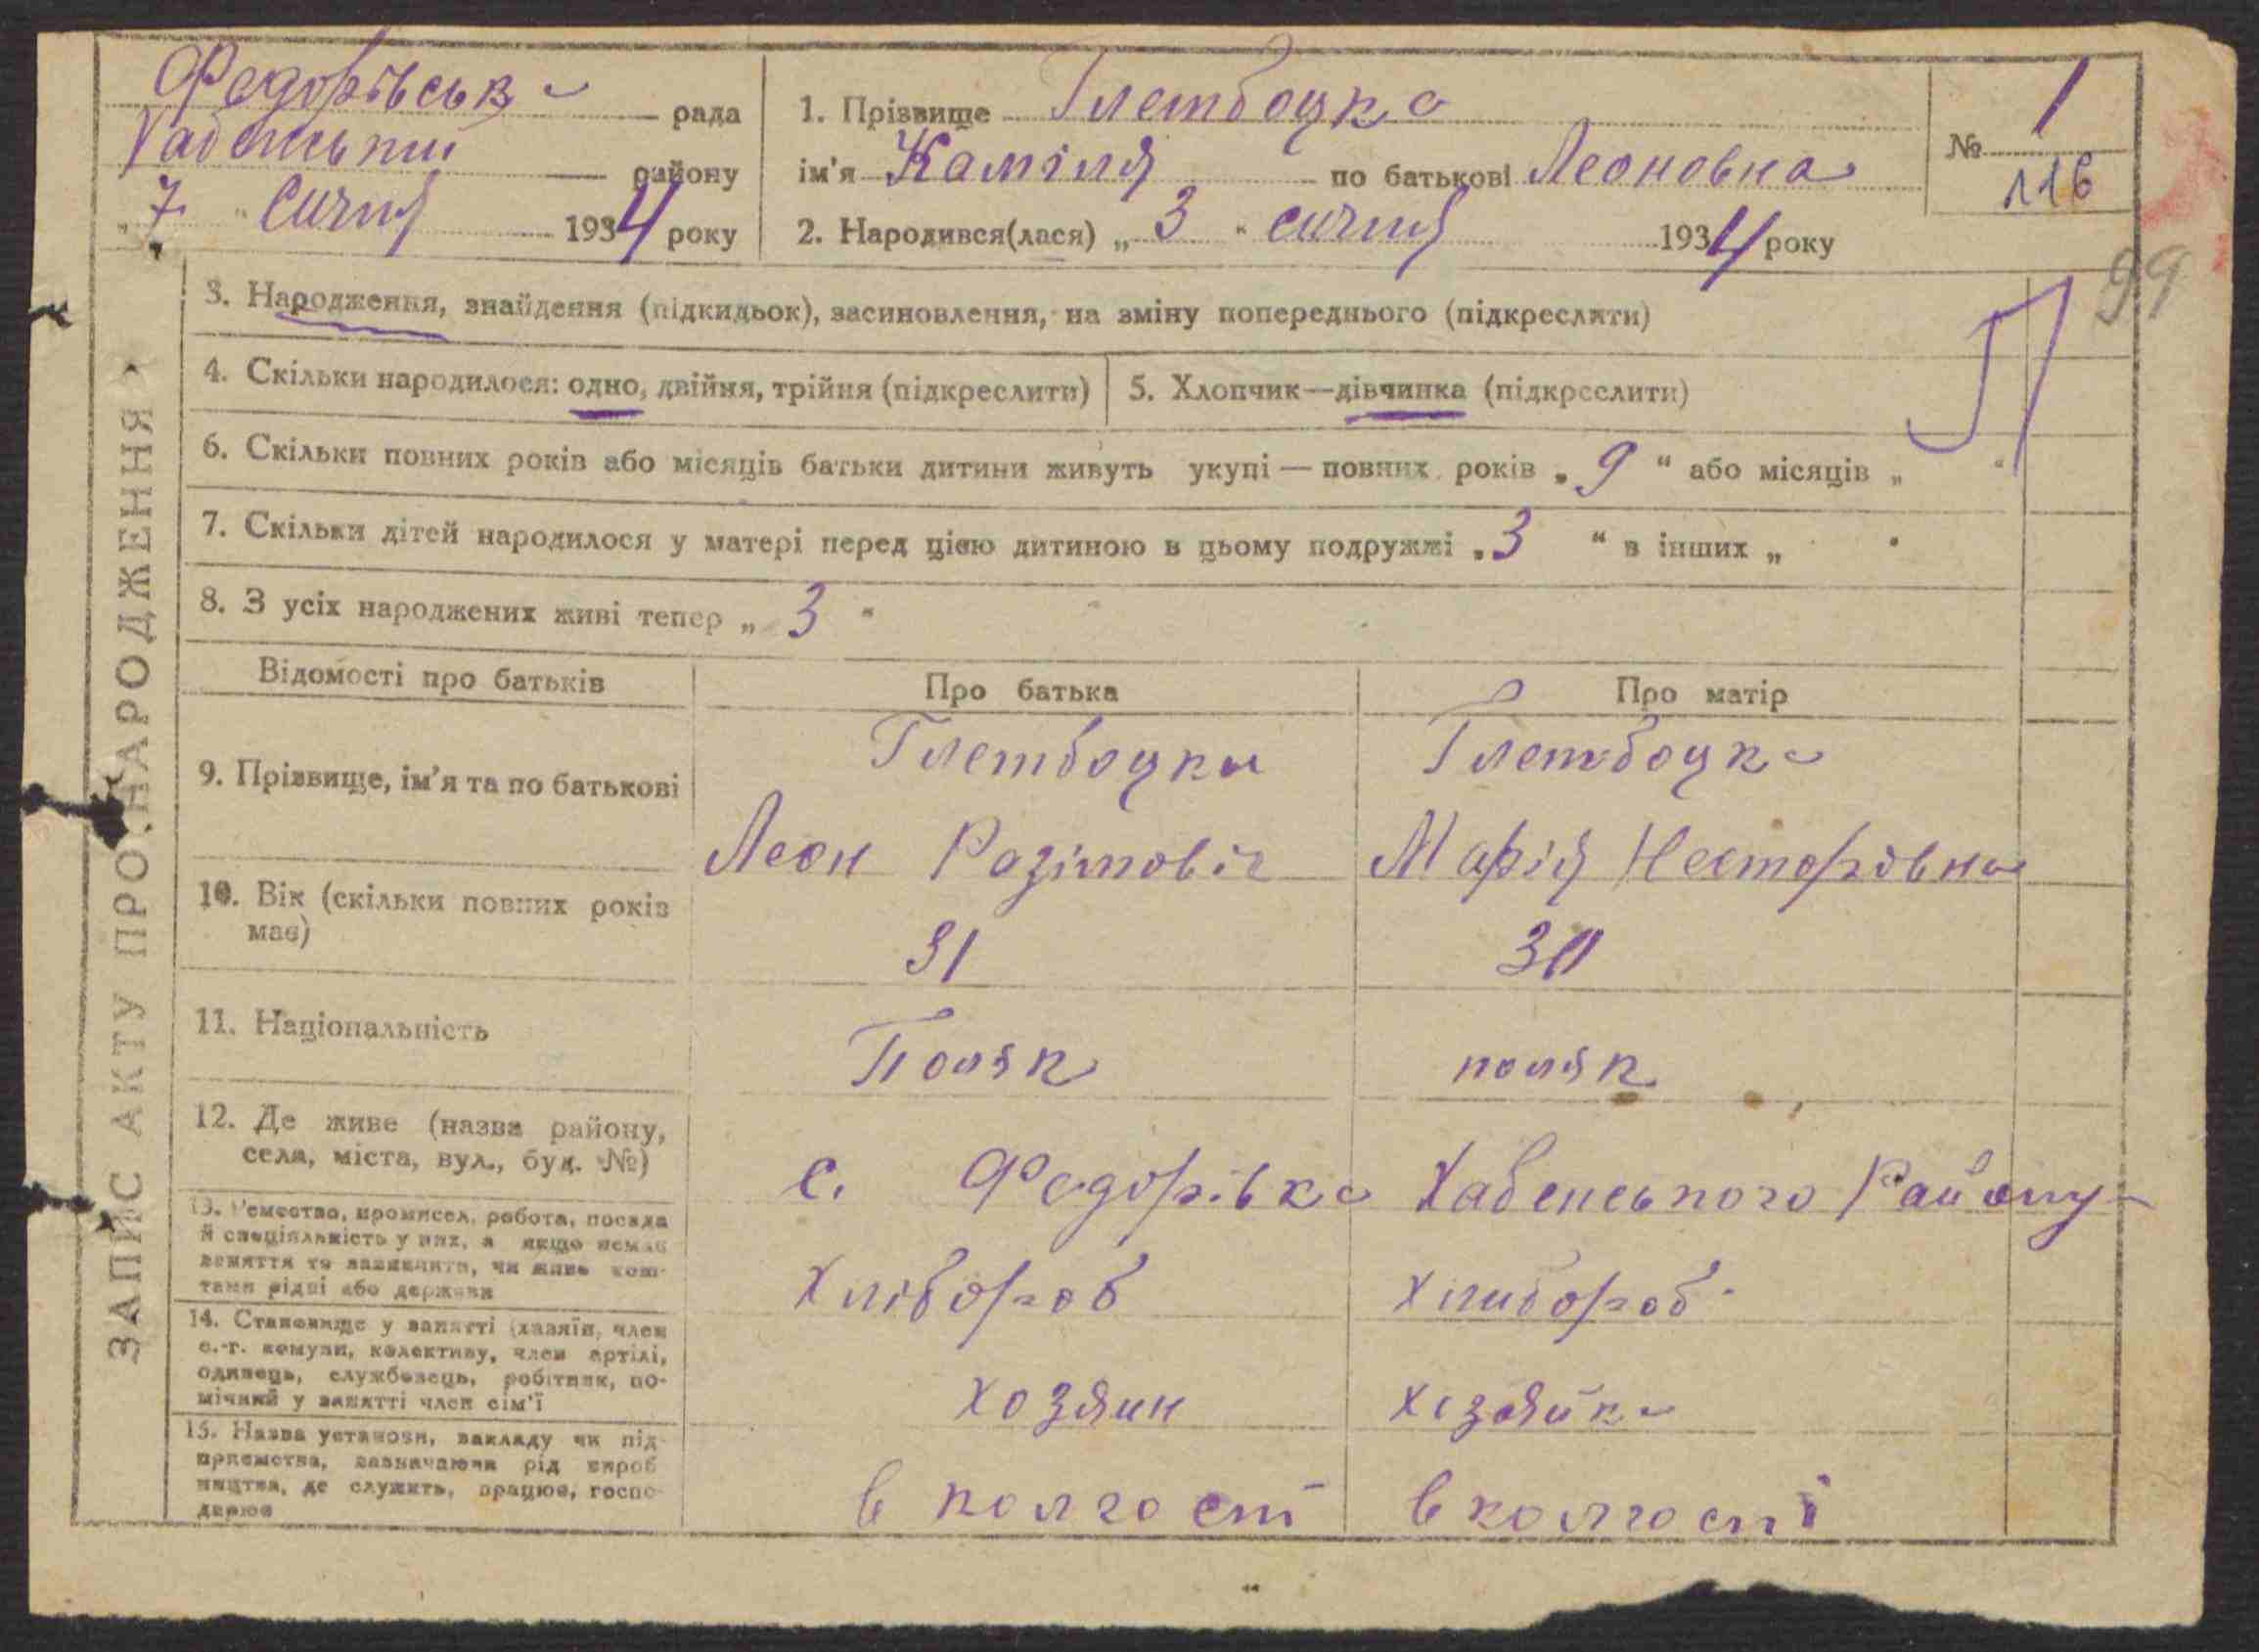 Федорівська рада
Хабенський району
„7" Січня 1934 року
1. Прізвище Глетбоцка
ім'я Каміля по батькові Леоновна
2. Народився(лася) „3" січня 1934 року
№ 1
116
99
ЗАПИС АКТУ ПРО НАРОДЖЕННЯ
3. Народження, знайдення (підкидьок), засиновлення, на зміну попереднього (підкреслити)
4. Скільки народилося: одно, двійня, трійня (підкреслити)
5. Хлопчик—дівчинка (підкреслити)
6. Скільки повних років або місяців батьки дитини живуть укупі — повних років „9" або місяців „ "
7. Скільки дітей народилося у матері перед цією дитиною в цьому подружжі „3" в інших „ "
8. З усіх народжених живі тепер „3"
Відомості про батьків
Про батька
Про матір
9. Прізвище, ім'я та по батькові
Глетбоцки
Леон Разімовіч
Глетбоцка
Марія Несторовна
10. Вік (скільки повних років
має)
31
30
11. Національність
Поляк
поляк
12. Де живе (назва району,
села, міста, вул., буд. №)
с. Федорівка Хабенського Району
13. Ремество, промисел, робота, посада
й спеціяльність у них, а якщо немає
заняття то зазначити, чи живе кош-
тами рідні або держави
Хлібороб
Хлибороб
14. Становище у занятті (хазяїн, член
с.-г. комуни, колективу, член артілі,
одинець, службовець, робітник, по-
мічний у занятті член сім'ї
хозяин
хозяйка
15. Назва установи, закладу чи під-
приємства, зазначаючи рід вироб
ництва, де служить, працює, госпо-
дарює
в колгости
в колгості